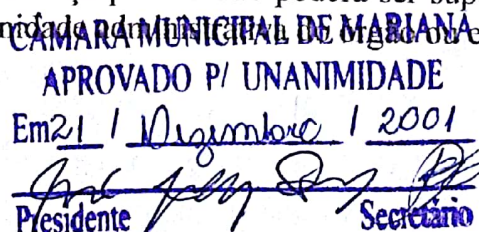 poderá ser sup
CÂMARA MUNICIPAL DE MARIANA
APROVADO P/ UNANIMIDADE
Em 21 / Dezembro / 2001
Presidente Secretário